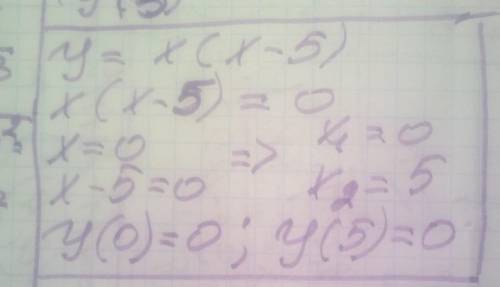 y(5)
y = x(x-5)
x(x-5) = 0
x=0 => x₁=0
x-5=0 x₂=5
y(0)=0; y(5)=0